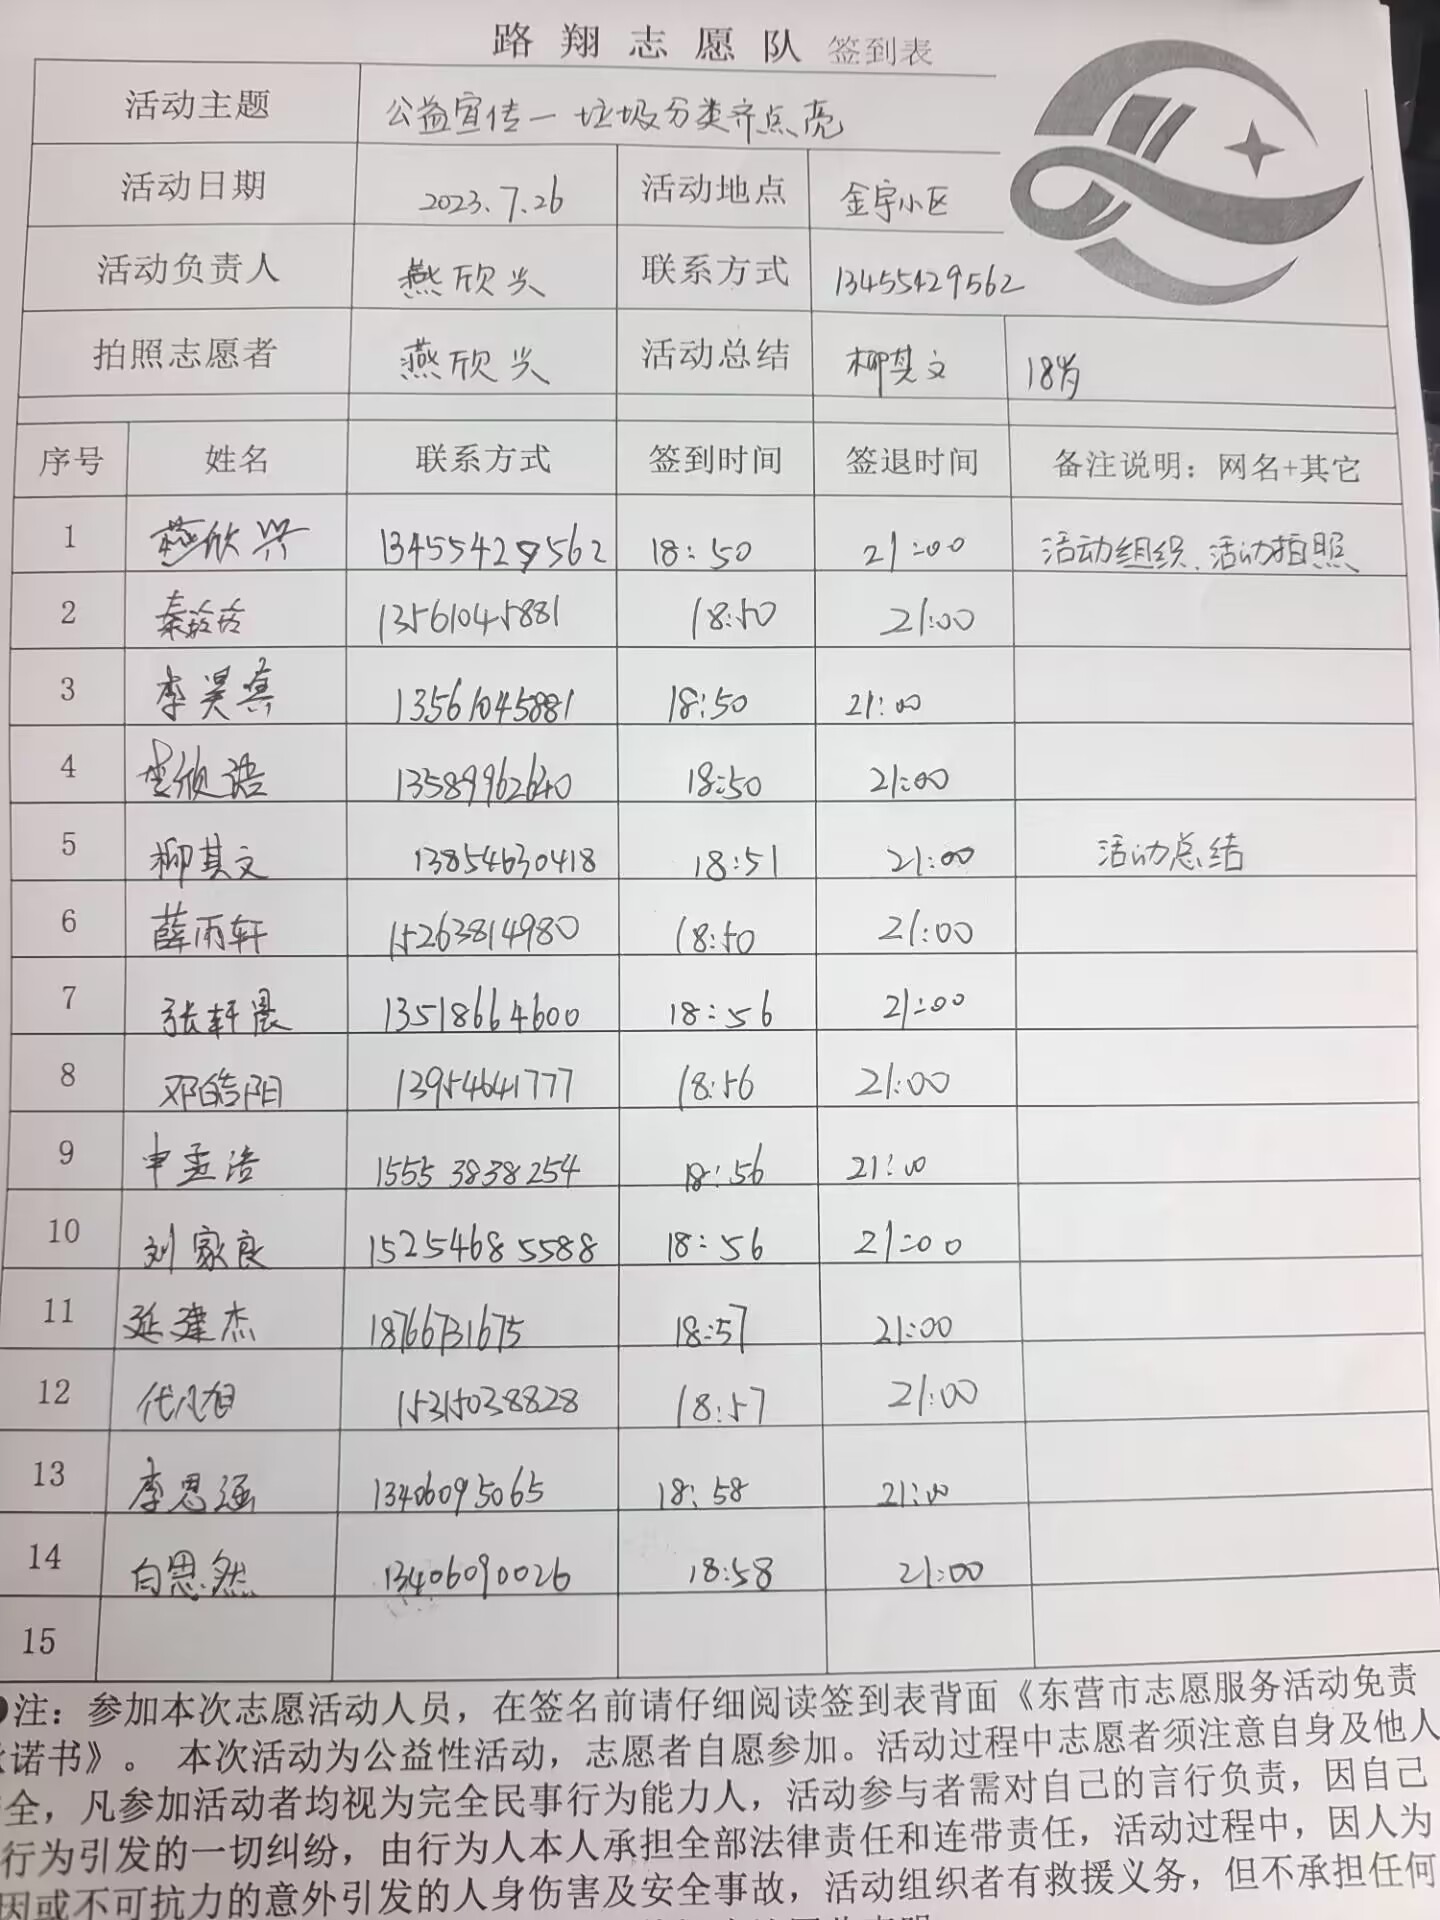 路翔志愿队 签到表
活动主题 公益宣传—垃圾分类齐点亮
活动日期 2023.7.26 活动地点 金宇小区
活动负责人 燕欣兴 联系方式 13455429562
拍照志愿者 燕欣兴 活动总结 柳其文 18岁
序号 姓名 联系方式 签到时间 签退时间 备注说明：网名+其它
1 燕欣兴 13455429562 18:50 21:00 活动组织、活动拍照
2 秦 13561045881 18:50 21:00
3 李昊真 13561045881 18:50 21:00
4 欣语 13589962640 18:50 21:00
5 柳其文 13854630418 18:51 21:00 活动总结
6 薛雨轩 15263814980 18:50 21:00
7 张轩晨 13518664600 18:56 21:00
8 邓皓阳 13954641777 18:56 21:00
9 申孟浩 15553838254 18:56 21:00
10 刘家良 15254685588 18:56 21:00
11 延建杰 18766731675 18:57 21:00
12 代凡旭 15315038828 18:57 21:00
13 李思涵 13406095065 18:58 21:00
14 白思然 13406090026 18:58 21:00
15
注：参加本次志愿活动人员，在签名前请仔细阅读签到表背面《东营市志愿服务活动免责
诺书》。 本次活动为公益性活动，志愿者自愿参加。活动过程中志愿者须注意自身及他人
全，凡参加活动者均视为完全民事行为能力人，活动参与者需对自己的言行负责，因自己
行为引发的一切纠纷，由行为人本人承担全部法律责任和连带责任，活动过程中，因人为
因或不可抗力的意外引发的人身伤害及安全事故，活动组织者有救援义务，但不承担任何